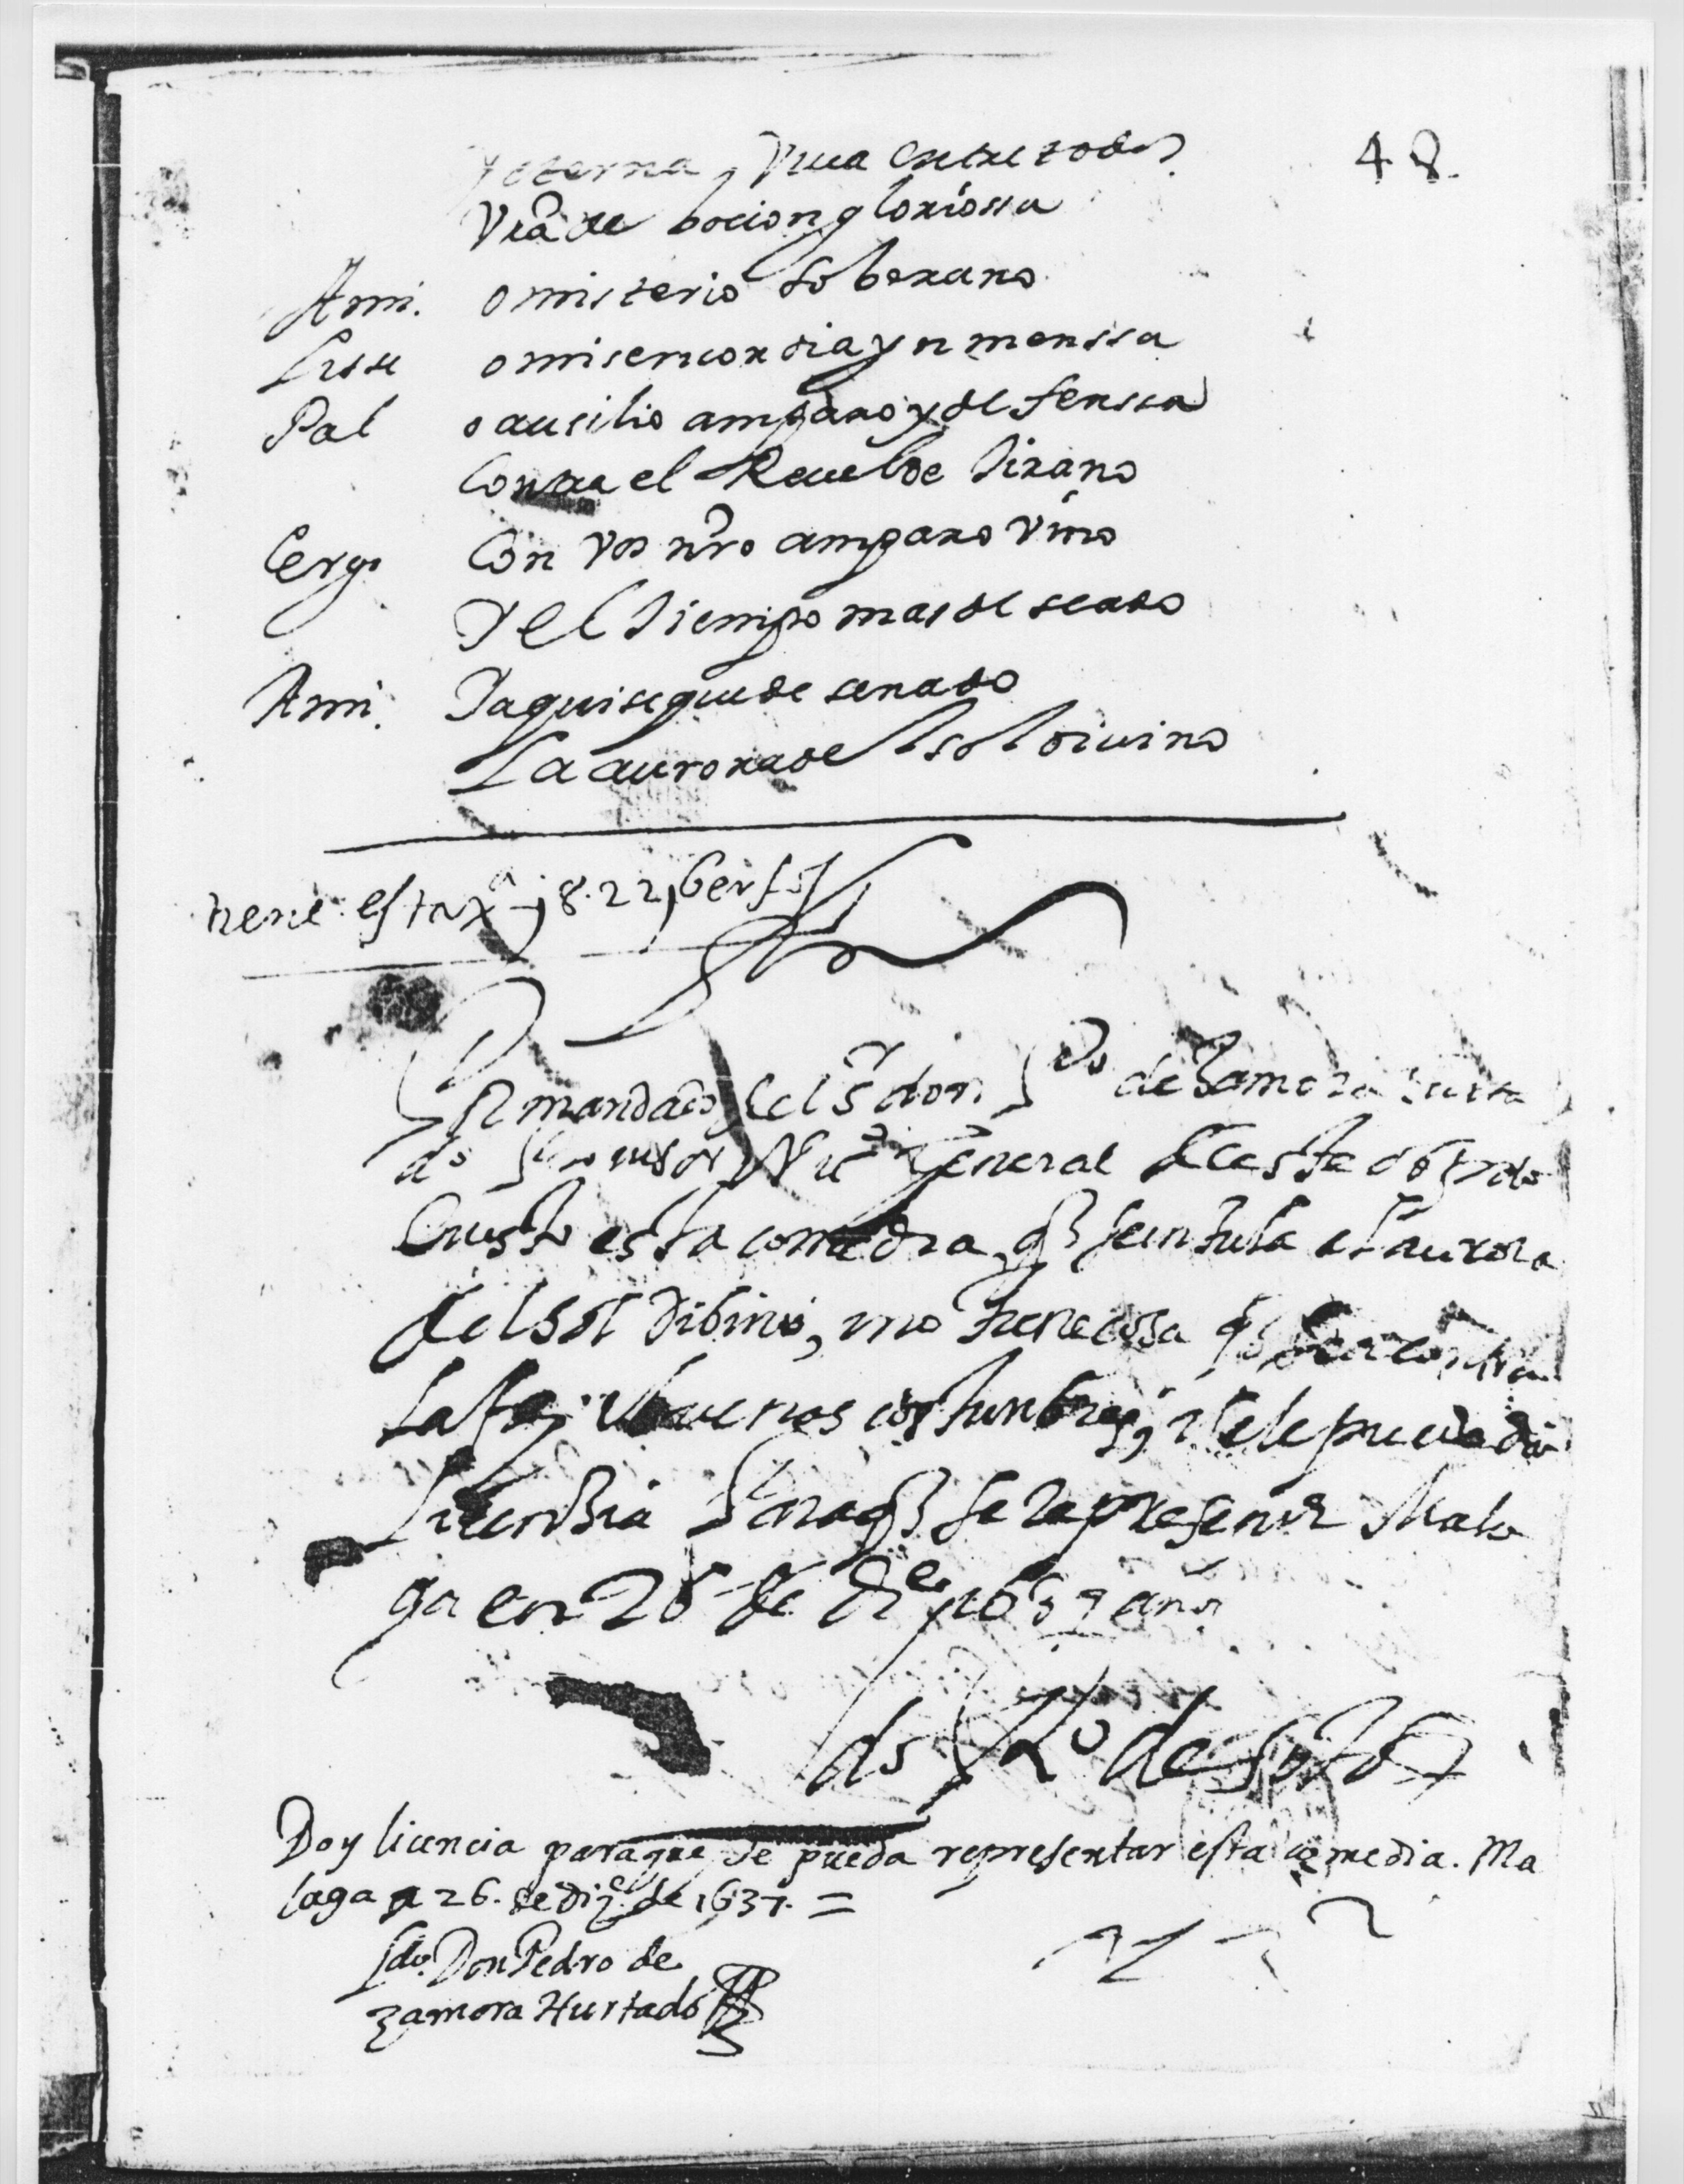 48.
y eterna, viua entre todos
Vrã deboçion gloriossa
Ami. o misterio soberano
Lisse o misericordia ynmenssa
Pal o ausilio amparo y defenssa
Contra el Reuelde tirano
Cergo Con vos nr̃o amparo vino
Y el tiempo mas deseado
Ami. Y aqui se quede senado
La aurora del sol diuino
tiene esta xª 822 bersos
Por mandado del Sr don Pº de Zamora hurta
do Prouisor y Vicº General de este obispdo
e uisto esta comedia q̃ se intitula el aurora
del sol dibino, i no tiene cosa q̃ sea contra
la fe, i buenas costunbres, i se le puede dar
licençia para q̃ se represente Mala
ga en 26 de Dize 1637 años
de Soto
Doy licencia para que se pueda representar esta comedia. Ma
laga a 26. de dize. de 1637. =
Ldo. Don Pedro de
Zamora Hurtado